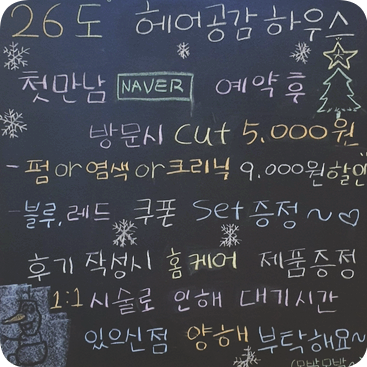 26도 헤어공감하우스
첫만남 NAVER 예약후
방문시 cut 5.000원
- 펌 or 염색 or 크리닉 9.000원할인
- 블루,레드 쿠폰 set증정~♡
후기 작성시 홈케어 제품증정
1:1 시술로 인해 대기시간
있으신점 양해부탁해요~